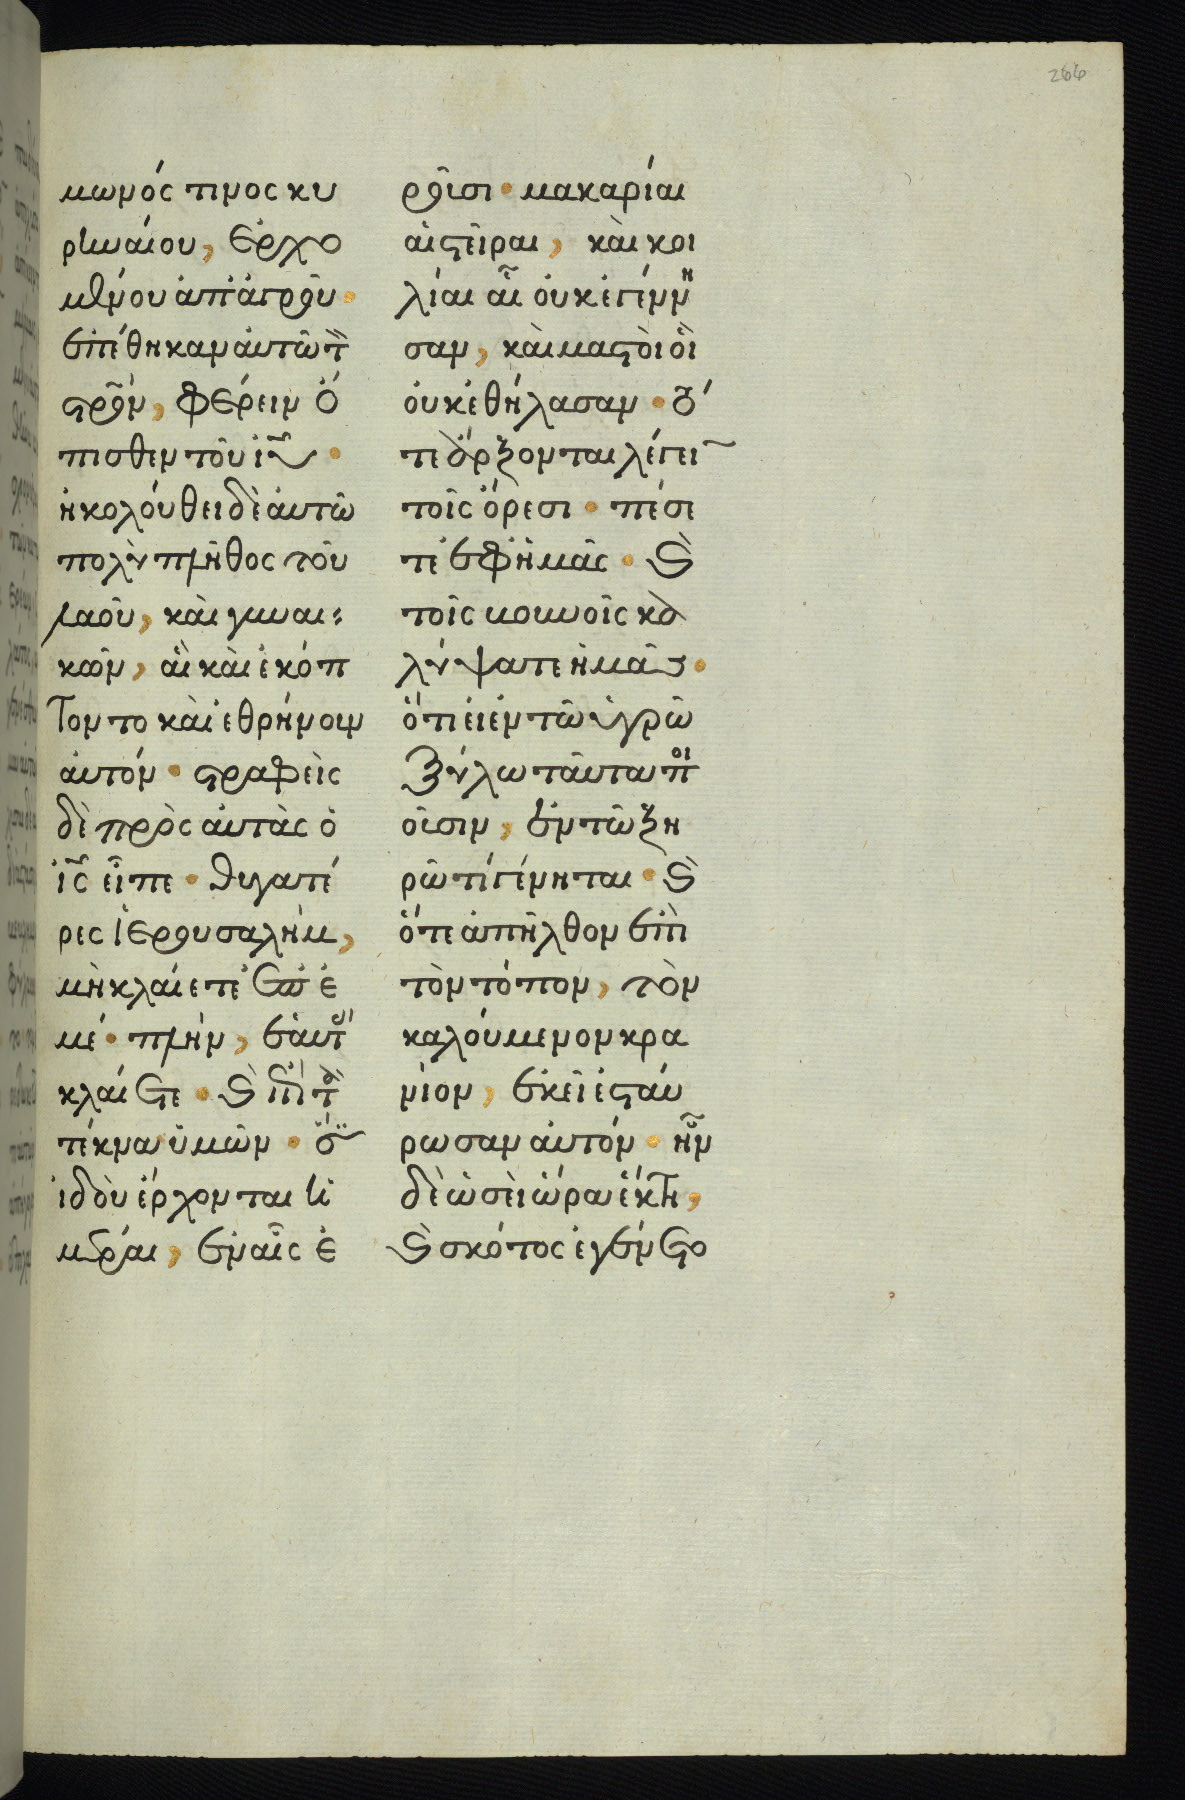 266
μωνός τινος κυ
ρηναίου, ἐρχο
μένου ἀπ' ἀγροῦ·
ἐπέθηκαν αὐτῶ τὸν
σταυρόν, φέρειν ὄ
πισθεν τοῦ ιῦ·
ἠκολούθει δὲ αὐτῶ
πολὺ πλῆθος τοῦ
λαοῦ, καὶ γυναι
κῶν, αἳ καὶ ἐκόπ
τοντο καὶ ἐθρήνουν
αὐτόν· στραφεὶς
δὲ πρὸς αὐτὰς ὁ
ις εἶπε· θυγατέ
ρες ἱερουσαλὴμ,
μὴ κλαίετε ἐπ' ἐ
μέ· πλὴν, ἐφ' ἑαυτὰς
κλαίετε· καὶ ἐπὶ τὰ
τέκνα ὑμῶν· ὅτι
ἰδοὺ ἔρχονται ἡ
μέραι, ἐν αἷς ἐ
ροῦσι· μακάριαι
αἱ στεῖραι, καὶ κοι
λίαι αἳ οὐκ ἐγέννη
σαν, καὶ μαστοὶ οἳ
οὐκ ἐθήλασαν· τό
τε ἄρξονται λέγειν
τοῖς ὄρεσι· πέσε
τε ἐφ' ἡμᾶς· καὶ
τοῖς βουνοῖς κα
λύψατε ἡμᾶς·
ὅτι εἰ ἐν τῶ ὑγρῶ
ξύλω ταῦτα ποι
οῦσιν, ἐν τῶ ξη
ρῶ τί γένηται· καὶ
ὅτε ἀπῆλθον ἐπὶ
τὸν τόπον, τὸν
καλούμενον κρα
νίον, ἐκεῖ ἐσταύ
ρωσαν αὐτόν· ἦν
δὲ ὡσεὶ ὥρα ἕκτη,
καὶ σκότος ἐγένετο